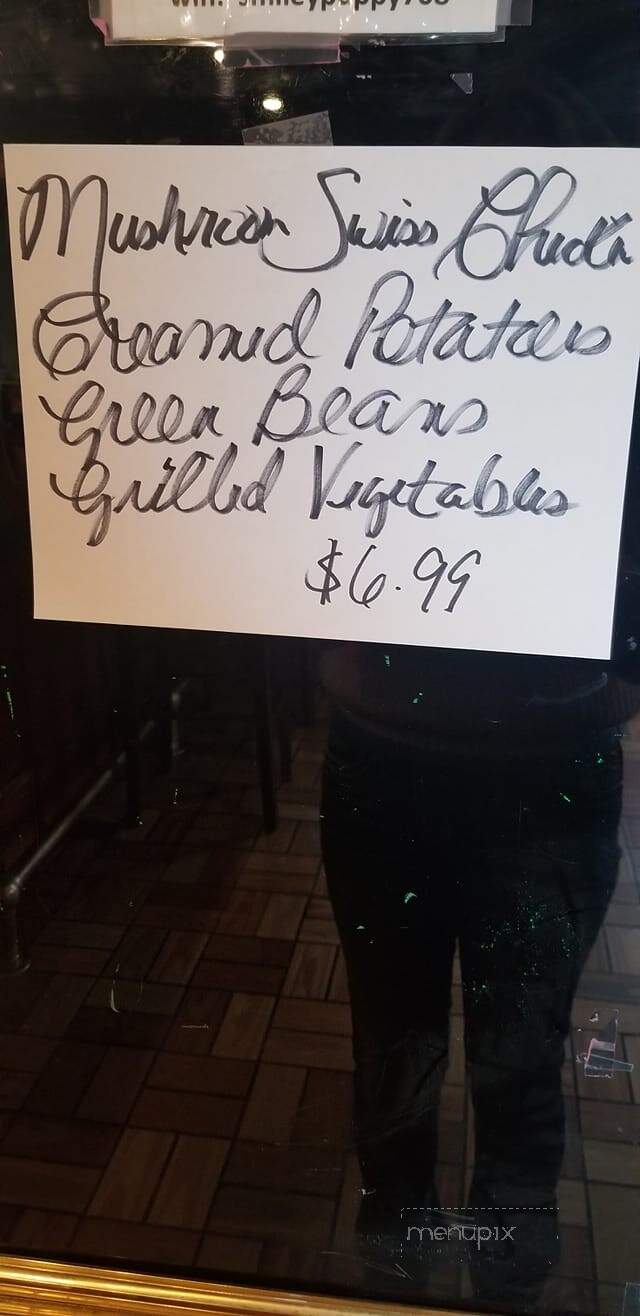 Mushroom Swiss Chuck
Creamed Potatoes
Green Beans
Grilled Vegetables
$6.99
menupix